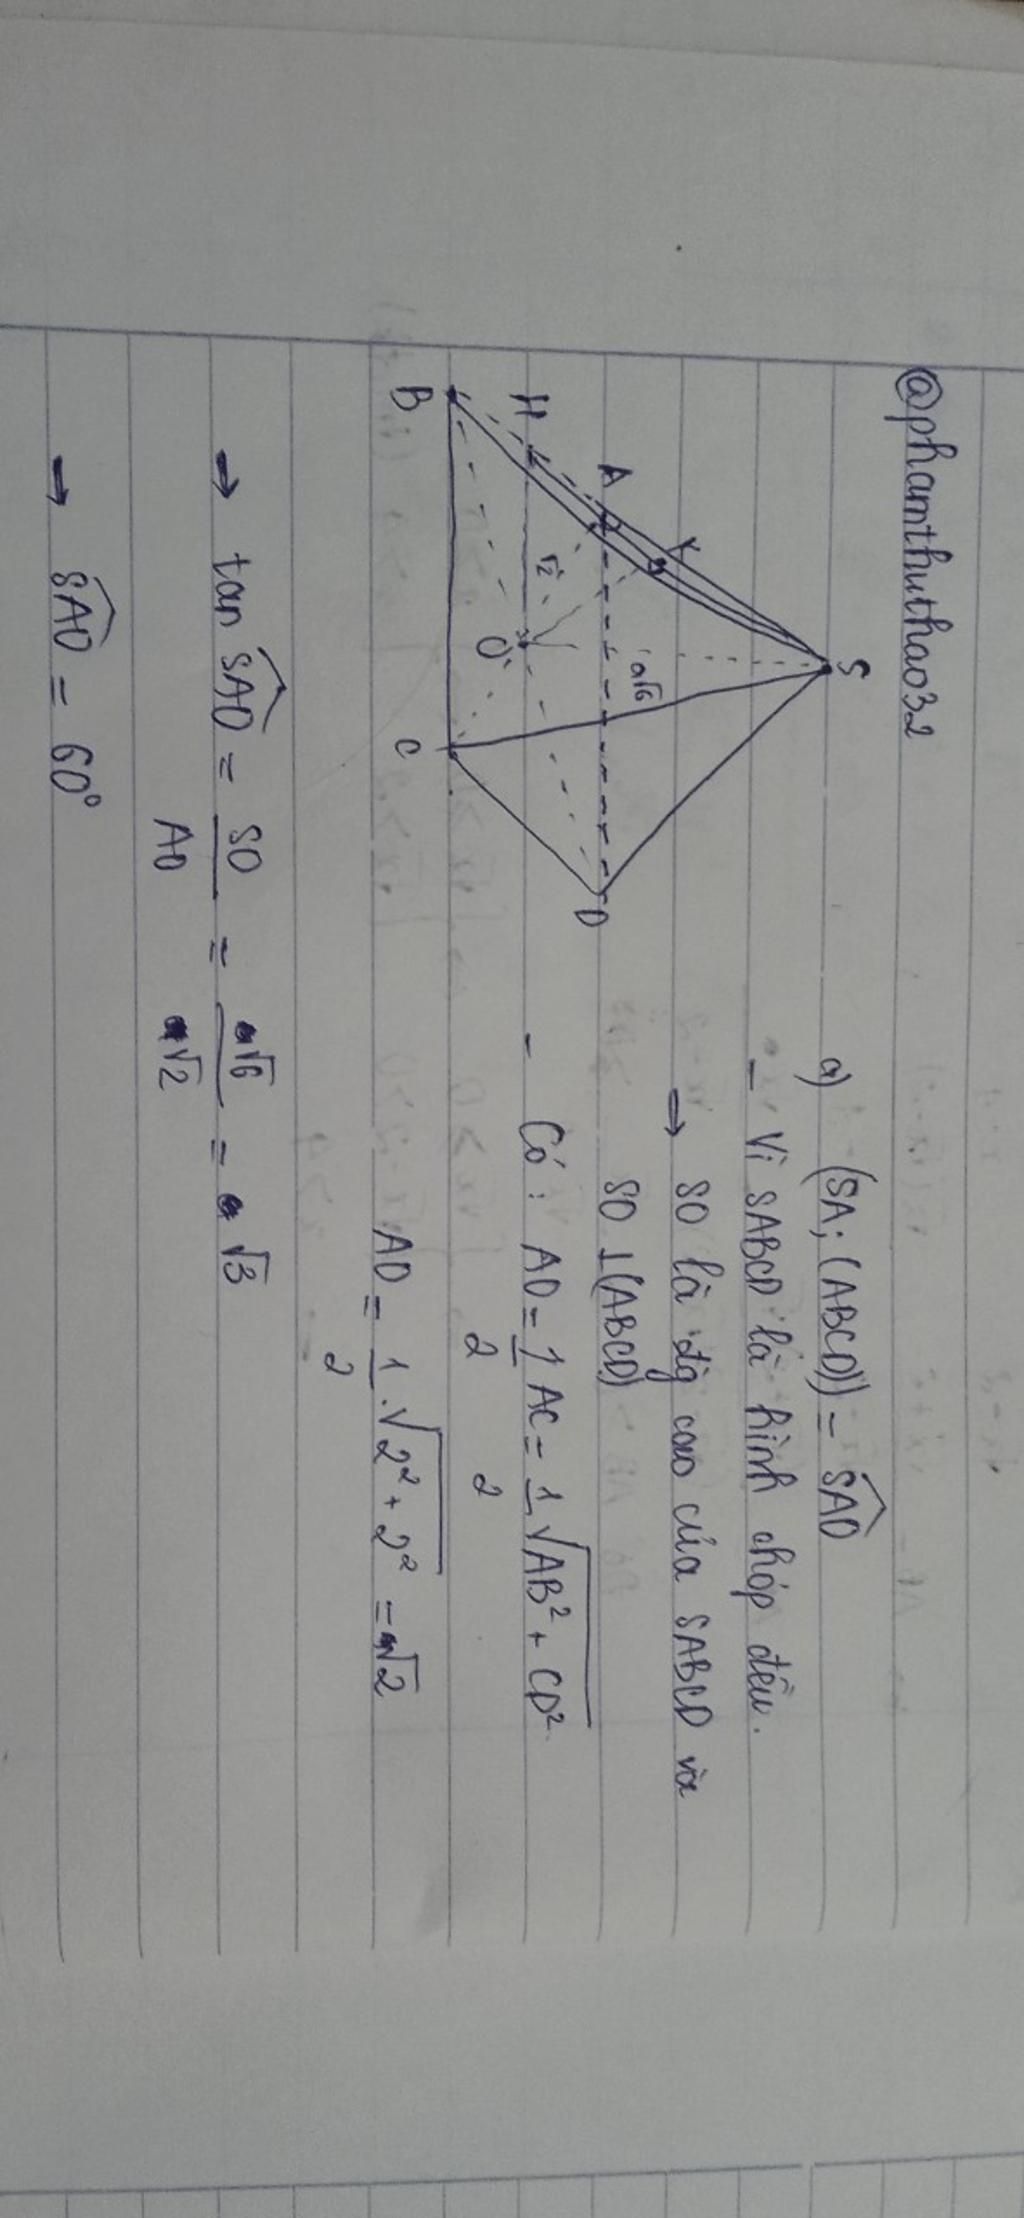 @phamthuthao32
S
K
A
H
B
O
C
D
a√6
√2
a) (SA; (ABCD)) = SAO
- Vì SABCD là hình chóp đều.
→ SO là đg cao của SABCD và
SO ⊥ (ABCD)
- Có: AO = 1/2 AC = 1/2 √AB² + CD²
AO = 1/2 . √2² + 2² = √2
→ tan SAO = SO/AO = √6/√2 = √3
→ SAO = 60°